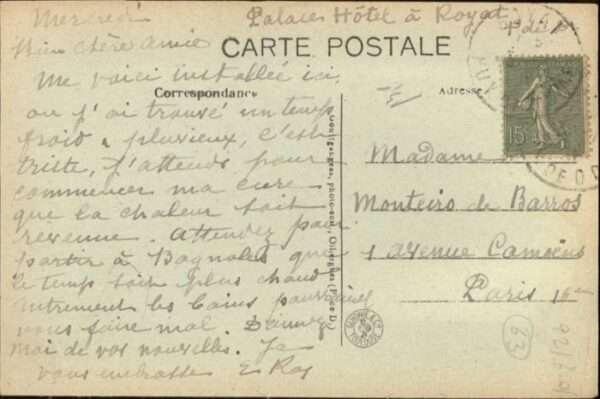 Mercredi Palaces Hôtel à Royat
P. de D.
Bien chère amie
CARTE POSTALE
Me voici installée ici
Correspondance
Adresse
ou j'ai trouvé un temps
froid & pluvieux, c'est
triste, j'attends pour
commencer ma cure
que la chaleur soit
revenue. Attendez pour
partir à Bagnoles que
le temps soit plus chaud
autrement les bains pourraient
vous faire mal. Donnez
moi de vos nouvelles. Je
vous embrasse E Ros
Madame
Monteiro de Barros
1 avenue Camoëns
Paris 16e
15c
PUY DE DOME
63